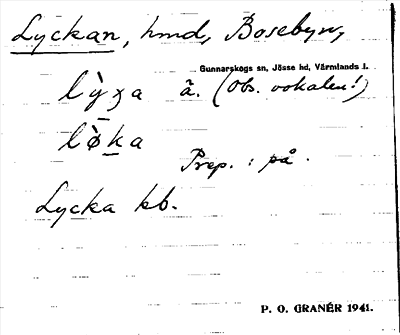 Lyckan, hmd, Bosebyn,
Gunnarskogs sn, Jösse hd, Värmlands l.
lỳʒa ã. (Obs. vokalen!)
lø̀ka
Prep. : på.
Lycka kb.
P. O. GRANÉR 1941.